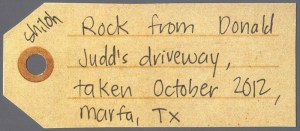 shiloh
Rock from Donald
Judd's driveway,
taken October 2012,
marfa, Tx